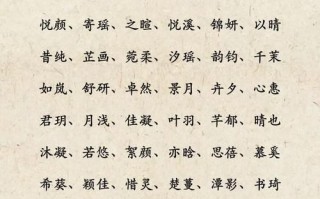 悦颜、寄瑶、之暄、悦溪、锦妍、以晴
昔纯、芷画、菀柔、汐瑶、韵钧、千茉
如岚、舒研、卓然、景月、卉夕、心惠
君玥、月浅、佳凝、叶羽、芊郁、晴也
沐凝、若悠、絮颜、亦晗、思蓓、慕奚
希葵、颖佳、惜灵、楚蔓、潭影、书琦